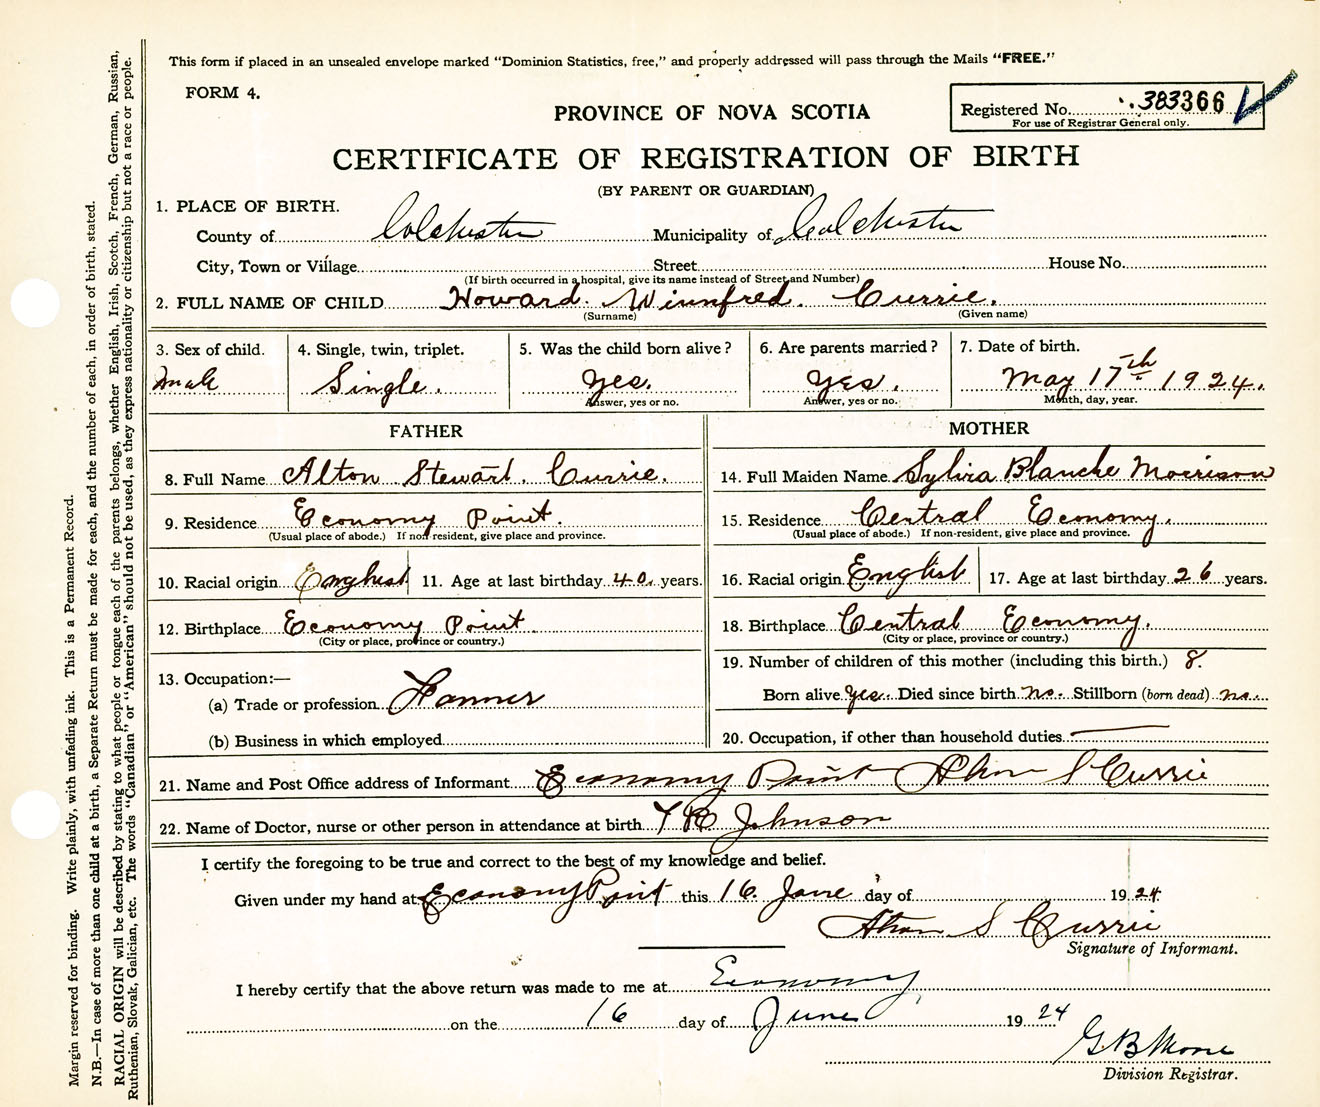 This form if placed in an unsealed envelope marked "Dominion Statistics, free," and properly addressed will pass through the Mails "FREE."
FORM 4.
PROVINCE OF NOVA SCOTIA
Registered No. 383366
For use of Registrar General only.
CERTIFICATE OF REGISTRATION OF BIRTH
(BY PARENT OR GUARDIAN)
1. PLACE OF BIRTH.
County of Colchester Municipality of Colchester
City, Town or Village Street House No.
(If birth occurred in a hospital, give its name instead of Street and Number)
2. FULL NAME OF CHILD Howard Winnfred Currie.
(Surname) (Given name)
3. Sex of child. 4. Single, twin, triplet. 5. Was the child born alive? 6. Are parents married? 7. Date of birth.
male Single. Yes. Yes. May 17th 1924.
Answer, yes or no. Answer, yes or no. Month, day, year.
FATHER MOTHER
8. Full Name Alton Stewart. Currie. 14. Full Maiden Name Sylvia Blanche Morrison
9. Residence Economy Point. 15. Residence Central Economy.
(Usual place of abode.) If non resident, give place and province. (Usual place of abode.) If non-resident, give place and province.
10. Racial origin English 11. Age at last birthday 40. years. 16. Racial origin English 17. Age at last birthday 26 years.
12. Birthplace Economy Point. 18. Birthplace Central Economy.
(City or place, province or country.) (City or place, province or country.)
13. Occupation:— 19. Number of children of this mother (including this birth.) 8.
(a) Trade or profession Farmer Born alive yes. Died since birth no. Stillborn (born dead) no.
(b) Business in which employed 20. Occupation, if other than household duties —
21. Name and Post Office address of Informant Economy Point Alton S Currie
22. Name of Doctor, nurse or other person in attendance at birth T R Johnson
I certify the foregoing to be true and correct to the best of my knowledge and belief.
Given under my hand at Economy Point this 16 June day of 1924.
Alton S Currie
Signature of Informant.
I hereby certify that the above return was made to me at Economy
on the 16 day of June 1924
G. B.
Division Registrar.
Margin reserved for binding. Write plainly, with unfading ink. This is a Permanent Record.
N.B.—In case of more than one child at a birth, a Separate Return must be made for each, and the number of each, in order of birth, stated.
RACIAL ORIGIN will be described by stating to what people or tongue each of the parents belongs, whether English, Irish, Scotch, French, German, Russian,
Ruthenian, Slovak, Galician, etc. The words "Canadian" or "American" should not be used, as they express nationality or citizenship but not a race or people.